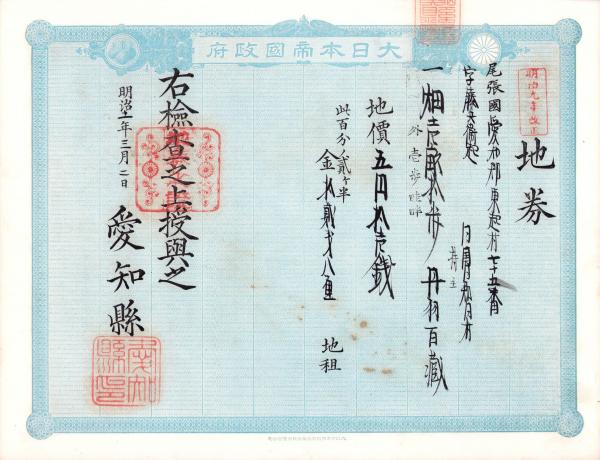 大日本帝國政府
明治九年改正
地券
尾張國愛知郡東起村七十五番
字藤兵衛起
同國同郡同村
持主
一畑壱畝拾歩 丹羽百蔵
外壱歩畦畔
地價五円拾壱銭
此百分ノ貳ケ半
金拾貳銭八厘 地租
右檢査之上授與之
明治十一年三月二日
愛知縣
愛知縣印